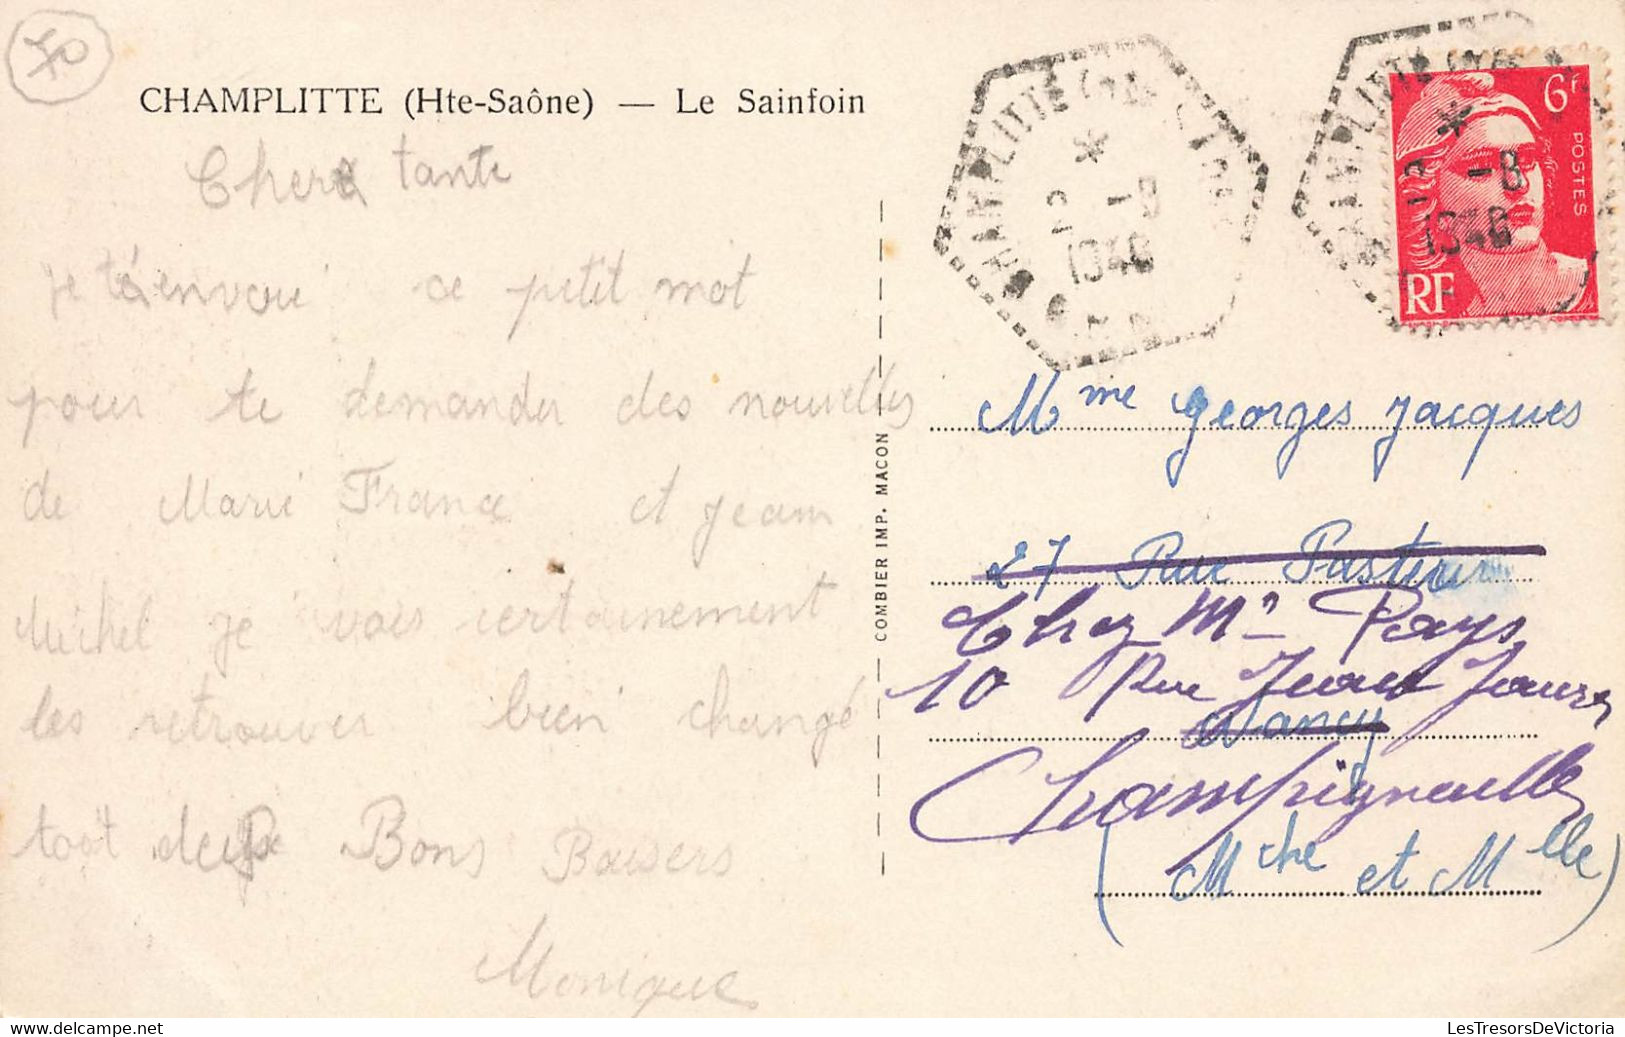 CHAMPLITTE (Hte-Saône) — Le Sainfoin
Chere tante
je t'envoie ce petit mot
pour te demander des nouvelles
de Marie France et jean
Michel je vais certainement
les retrouver bien changé
tout deux Bons Baisers
Monique
COMBIER IMP. MACON
CHAMPLITTE
* 2 1-8
1946
CHAMPLITTE
* 1-8
1946
6f
POSTES
RF
Mme Georges Jacques
27 Rue Pasteur
Chez Mr Pays
10 Rue Jean Jaurès
Nancy
Champigneulles
(Mthe et Mlle)
LesTresorsDeVictoria
www.delcampe.net